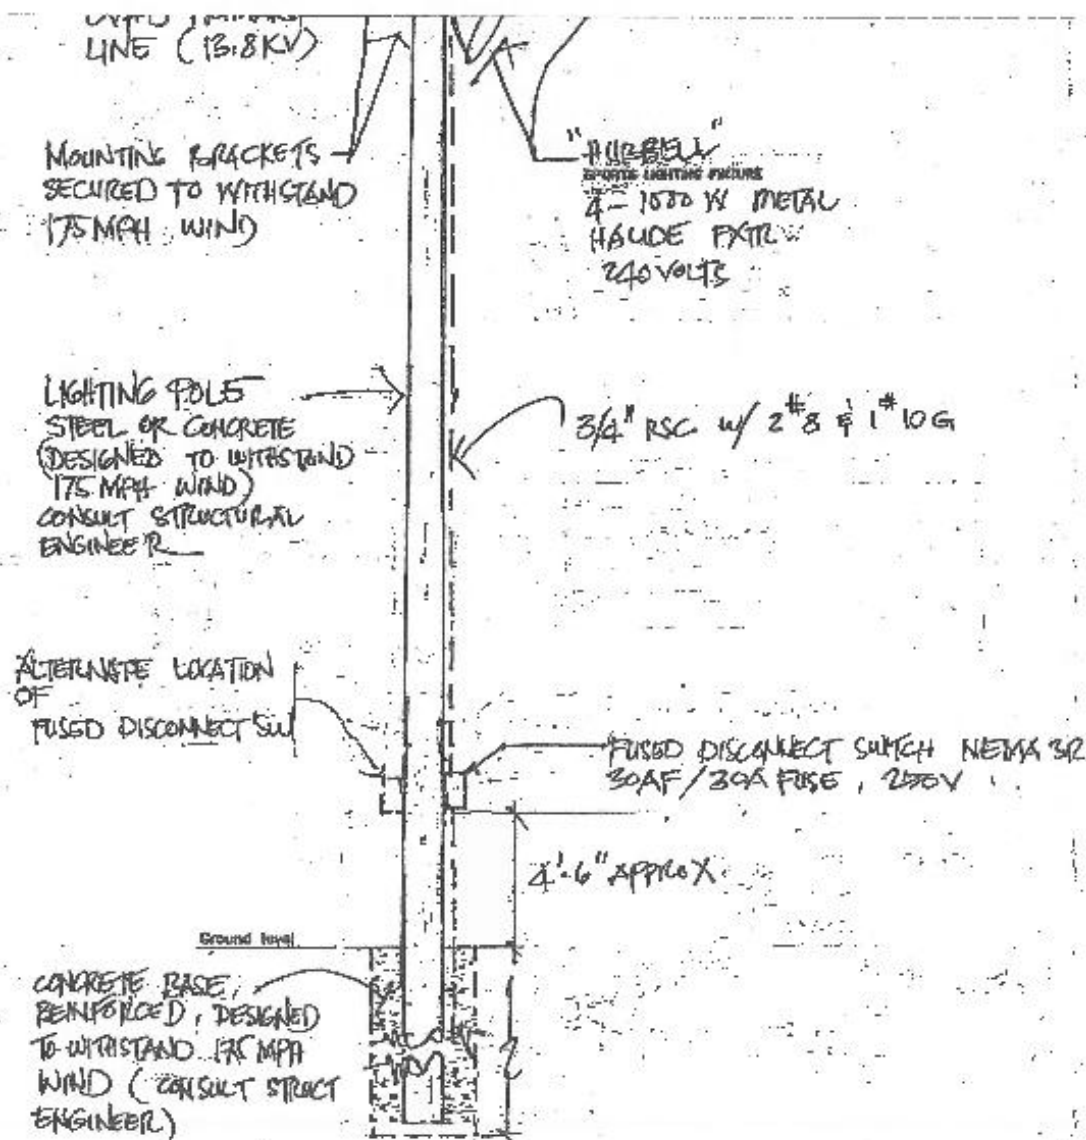 LINE (13.8KV)
MOUNTING BRACKETS
SECURED TO WITHSTAND
175 MPH WIND
"HUBBELL"
SPORTS LIGHTING FIXTURE
4 - 1000 W METAL
HALIDE FXTR
240 VOLTS
LIGHTING POLE
STEEL OR CONCRETE
(DESIGNED TO WITHSTAND
175 MPH WIND)
CONSULT STRUCTURAL
ENGINEER
3/4" RSC w/ 2#8 & 1#10G
ALTERNATE LOCATION
OF
FUSED DISCONNECT SW
FUSED DISCONNECT SWITCH NEMA 3R
30AF/30A FUSE, 250V
4'-6" APPROX
Ground level
CONCRETE BASE,
REINFORCED, DESIGNED
TO WITHSTAND 175 MPH
WIND (CONSULT STRUCT
ENGINEER)